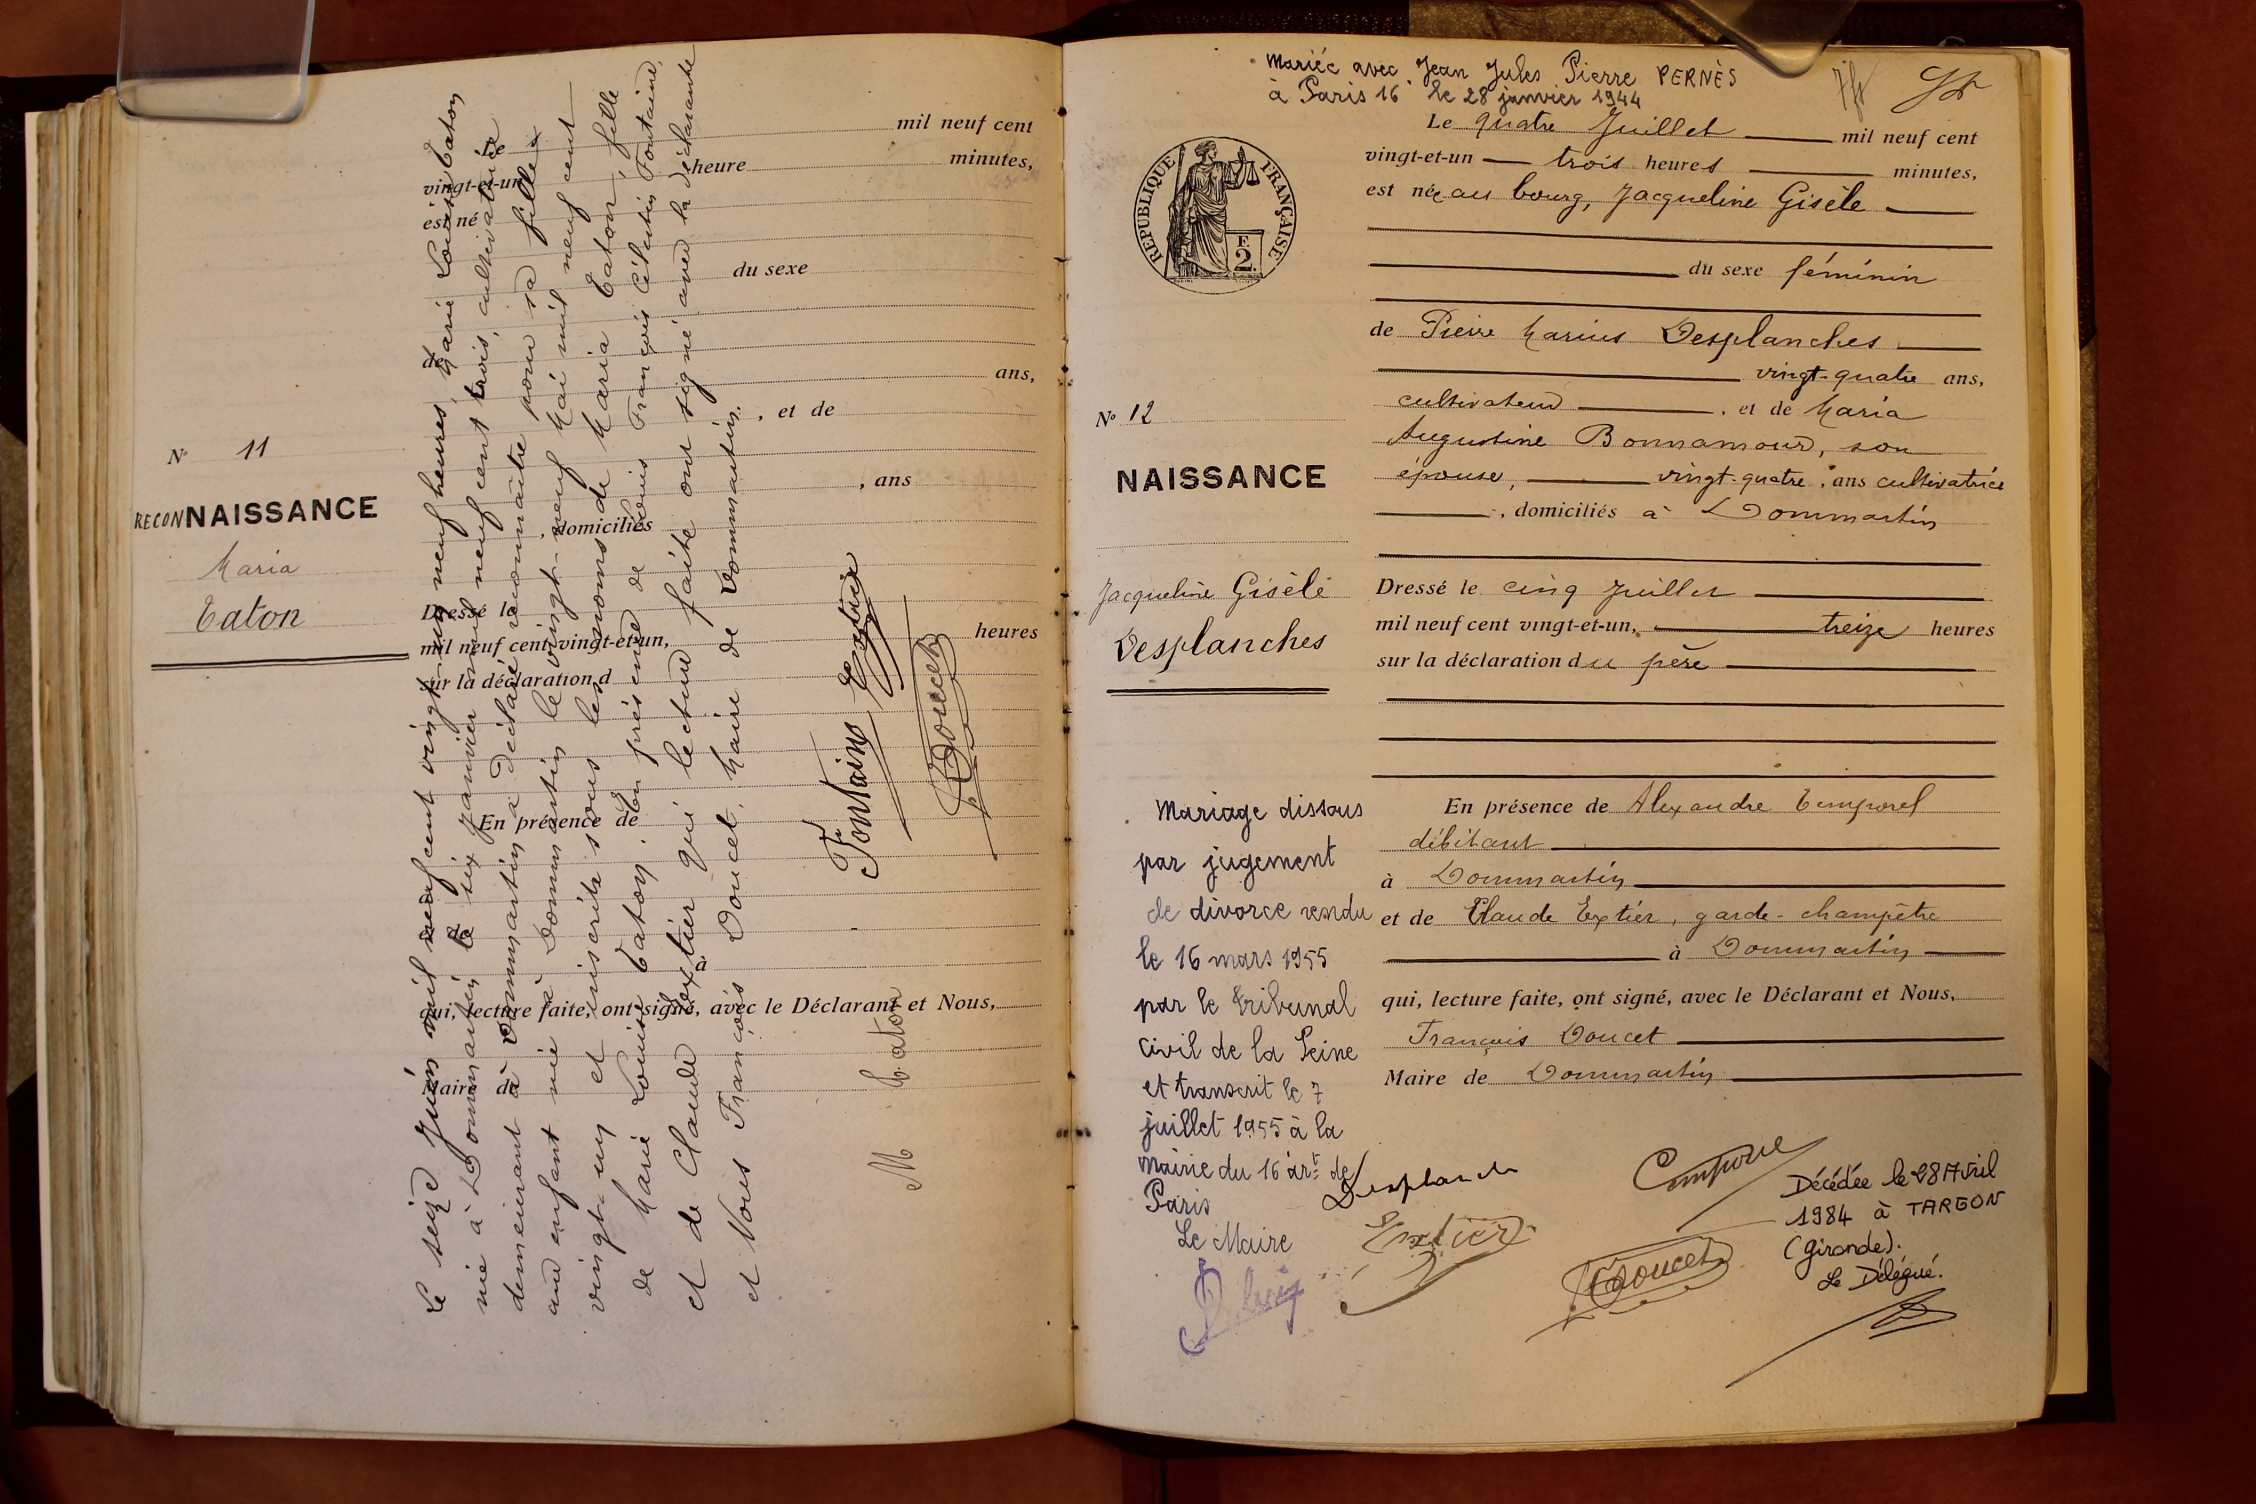 N° 11
RECONNAISSANCE
Maria
Taton
Le
mil neuf cent
vingt-et-un
heure
minutes,
est né
du sexe
de
ans,
, et de
, ans
, domiciliés
Dressé le
mil neuf cent vingt-et-un,
heures
sur la déclaration d
En présence de
à
qui, lecture faite, ont signé, avec le Déclarant et Nous,
Maire de
Le seize Juin mil neuf cent vingt-un neuf heures, Marie Louise Taton
née à Dommartin le six janvier mil neuf cent trois, cultivatrice
demeurant à Dommartin a déclaré reconnaître pour sa fille
un enfant née à Dommartin le vingt-neuf Mai mil neuf cent
vingt-un et inscrite sous les noms de Maria Taton, fille
de Marie Louise Taton. En présence de Louis François Célestin Fontaine,
et de Claude Extier qui lecture faite ont signé avec la déclarante
et Nous François Doucet, Maire de Dommartin.
M Taton
Fontaine
Extier
Doucet
Mariée avec Jean Jules Pierre PERNÈS
à Paris 16e le 28 janvier 1944
RÉPUBLIQUE FRANÇAISE
F.
2.
Le quatre Juillet mil neuf cent
vingt-et-un trois heures minutes,
est née au bourg, Jacqueline Gisèle
du sexe féminin
de Pierre Marius Desplanches
vingt-quatre ans,
cultivateur , et de Maria
Augustine Bonnamour, son
épouse, vingt-quatre , ans cultivatrice
, domiciliés à Dommartin
N° 12
NAISSANCE
Jacqueline Gisèle
Desplanches
Dressé le cinq Juillet
mil neuf cent vingt-et-un, treize heures
sur la déclaration du père
En présence de Alexandre Temporel
débitant
à Dommartin
et de Claude Extier, garde-champêtre
à Dommartin
qui, lecture faite, ont signé, avec le Déclarant et Nous,
François Doucet
Maire de Dommartin
Mariage dissous
par jugement
de divorce rendu
le 16 mars 1955
par le tribunal
civil de la Seine
et transcrit le 7
juillet 1955 à la
mairie du 16 art de
Paris
Le Maire
Desplanche
Extier
Temporel
Doucet
Décédée le 28 Avril
1984 à TARGON
(Gironde).
Le Délégué.